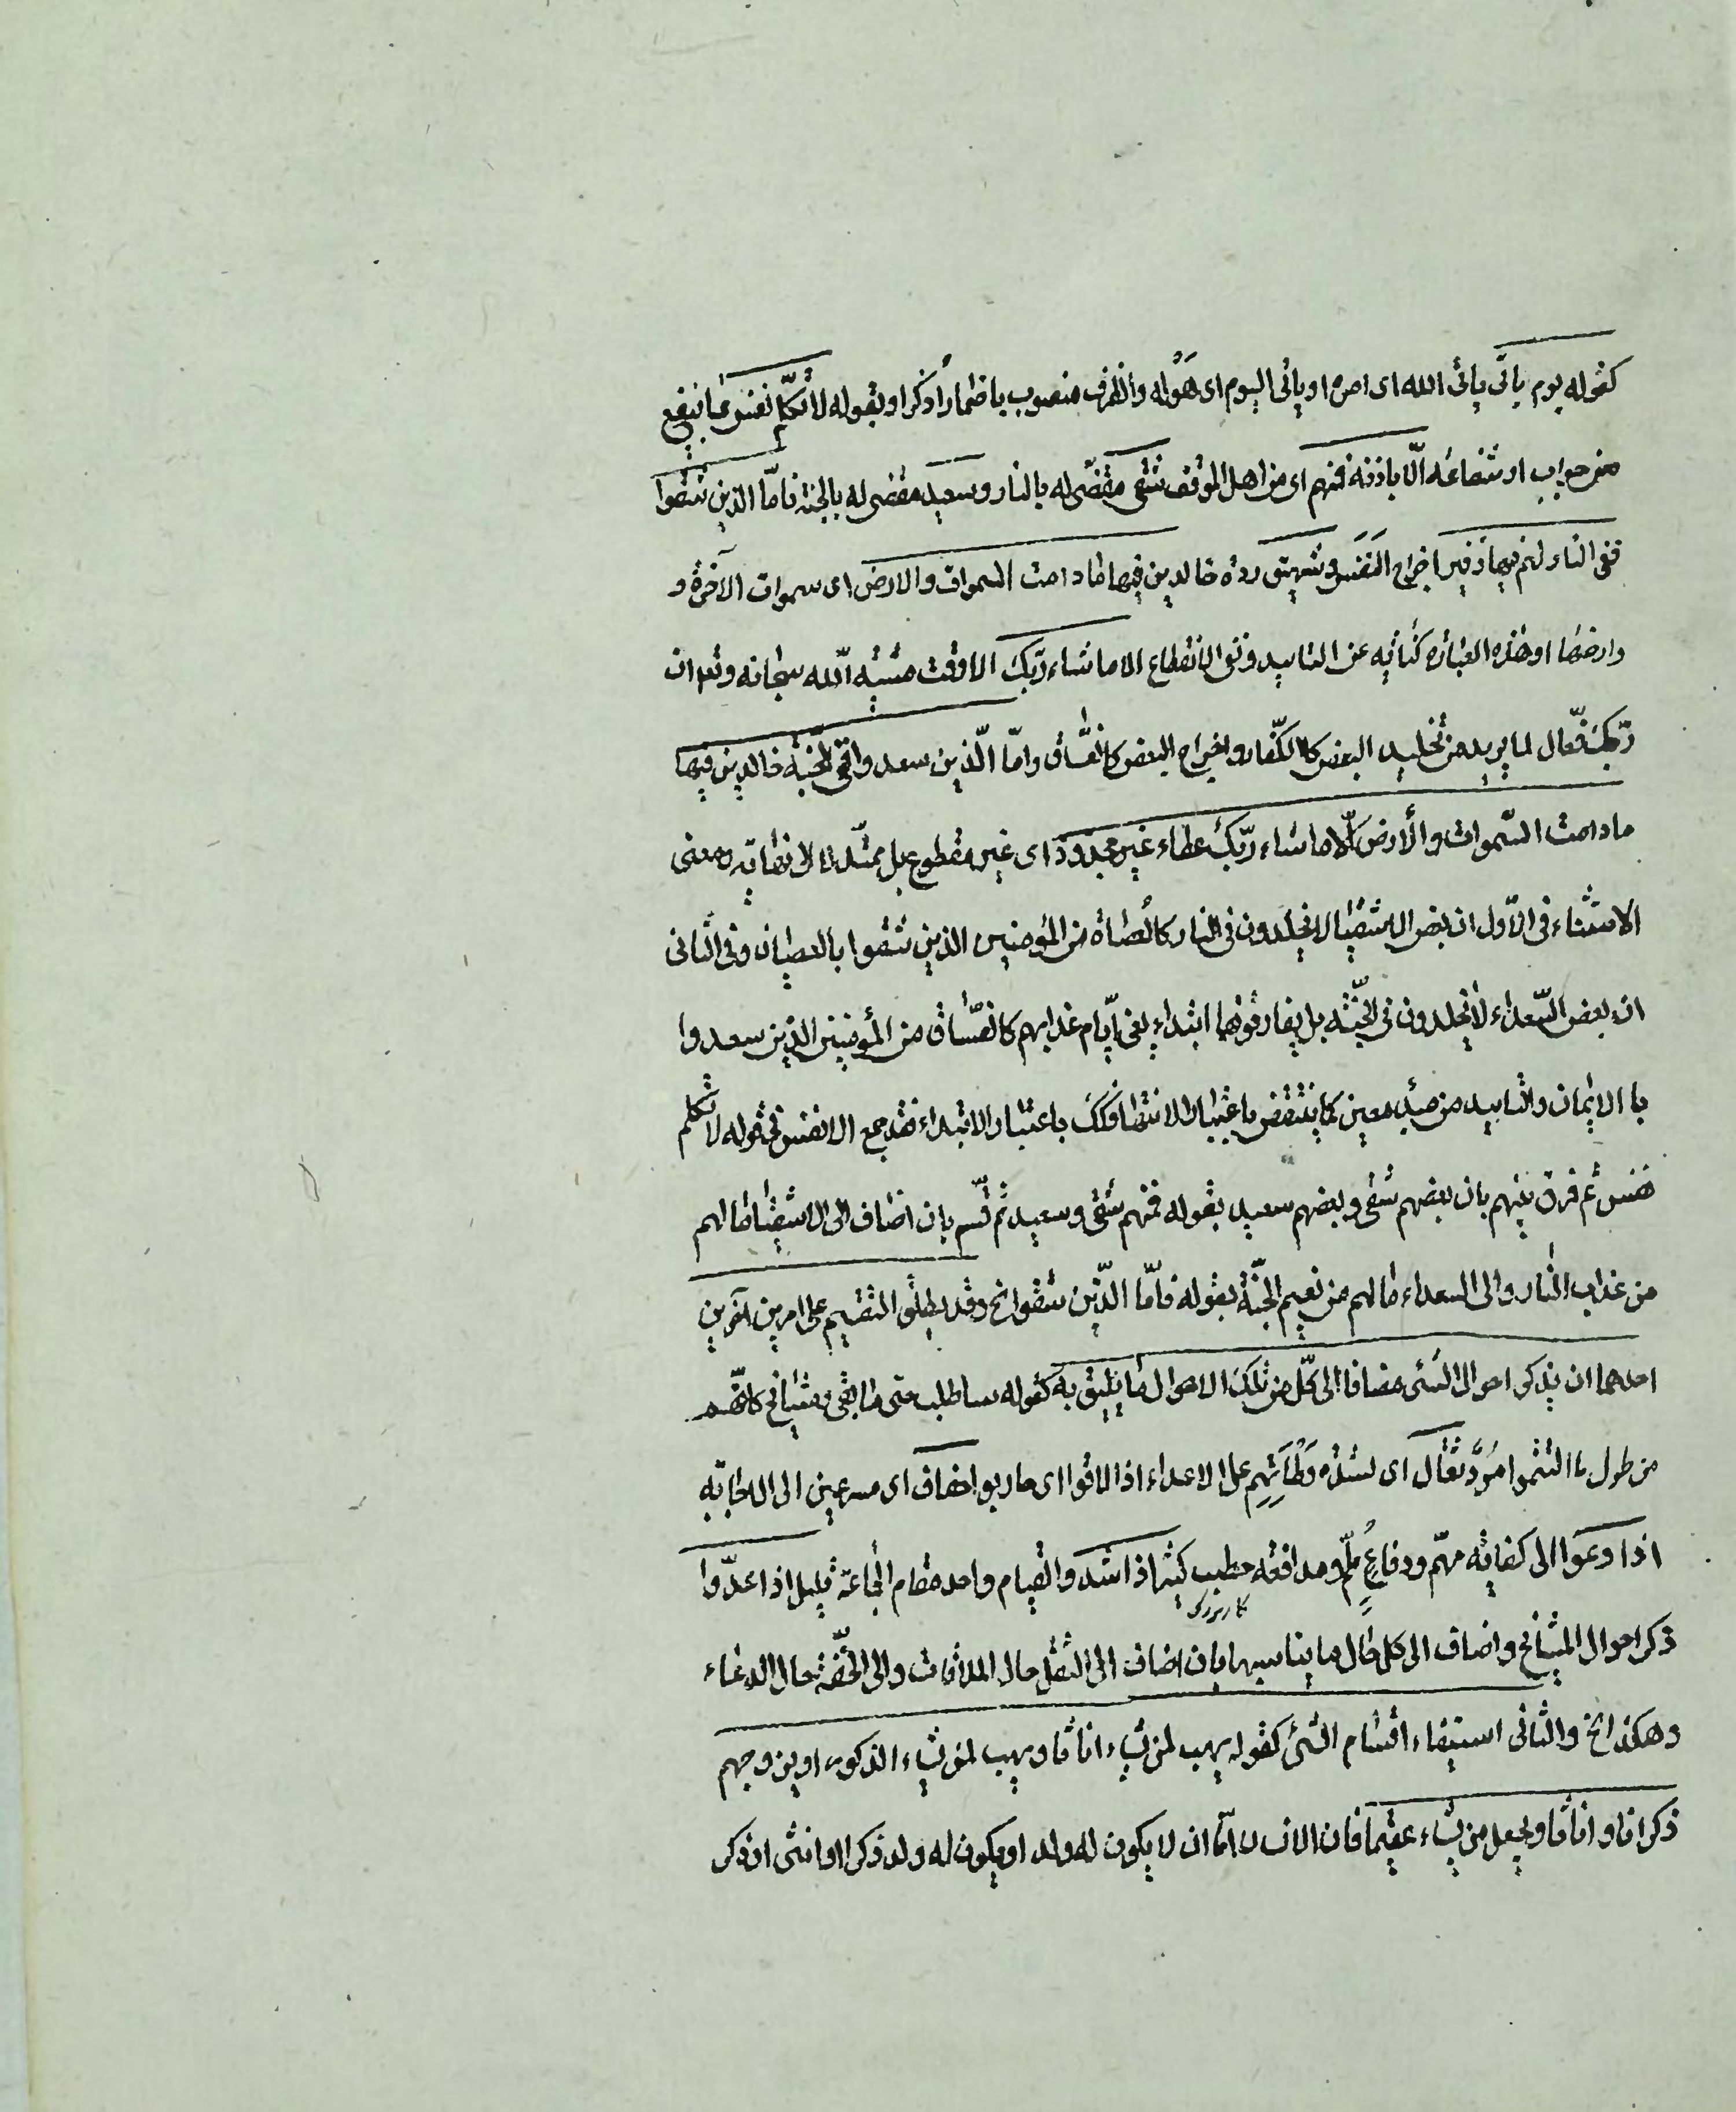 كقوله يوم ياتى يأتى الله اى امره او يأتى اليوم اى هَوْله والظرف منصوب باضمار اذكر او بقوله لا تكلّم نفس بما ينفع
من جواب او شفاعة الّا باذنه فمنهم اى من اهل الموقف شقى مقضّى له بالنار وسعيد مقضى له بالجنة فامّا الذين شقوا
ففى النار لهم فيها زفير اخراج النَفَس وشهيق ردّه خالدين فيها ما دامت السموات والارض اى سموات الآخرة و
وارضها او هذه العبارة كناية عن التابيد ونفى الانقطاع الا ما شاء ربّك الا وقت مشية اللّه سبحانه وتع ان
ربّك فعّال لما يريد من تخليد البعض كالكفّار واخراج البعض كالفسّاق وامّا الّذين سعدوا ففى الجنّة خالدين فيها
ما دامت السّموات والأرض الّا ما شاء ربّك عطاء غير مجذوذ اى غير مقطوع بل ممتدّ لا الى نهاية ومعنى
الاستثناء فى الاوّل ان بعض الاشقيا لا يخلدون فى النار كالعصاة من المؤمنين الذين شقوا بالعصيان وفى الثانى
ان بعض السّعداء لا يخلدون فى الجنّة بل يفارقونها ابتداء يعنى ايّام عذابهم كالفسّاق من المؤمنين الذين سعدوا
با الايمان والتابيد من مبدء معين كما ينتقض باعتبار الانتها فكك باعتبار الابتداء فقد جمع الانفس فى قوله لا تكلم
نفس ثم فرق بينهم بان بعضهم شقى وبعضهم سعيد بقوله فمنهم شقى وسعيد ثم قسّم بان اضاف الى الاشقيا ما لهم
من عذاب النار والى السعداء ما لهم من نعيم الجنّة بقوله فامّا الذّين شقوا الخ وقد يطلق التقسيم على امرين آخرين
احدهما ان يذكر احوال الشئ مضافا الى كلّ من تلك الاحوال ما يليق به كقوله ساطلب حقى بالقنى ومشايخ كانّهم
من طول ما التثموا مُرْدٌ ثقال اى لشدّة وَطْأَتِهِم على الاعداء اذا لاقوا اى حاربوا خفاف اى مسرعين الى الاجابة
اذا دعوا الى كفاية مهمّ ودفاعِ ملمّ ومدافعة خطيب كثير اذا شدوا لقيام واحد مقام الجماعة قليل اذا عدّوا
كار بزرك
ذكر احوال المشايخ واضاف الى كل حال ما يناسبها بان اضاف الى الثقل حال الملاقات والى الخفّة حال الدعاء
وهكذا الخ والثانى استيفاء اقسام الشئ كقوله يهب لمن يشاء اناثا ويهب لمن يشاء الذكور او يزوجهم
ذكرانا واناثا ويجعل من يشاء عقيما فان الانسان امّا ان لا يكون له ولد او يكون له ولد ذكر او انثى او ذكر